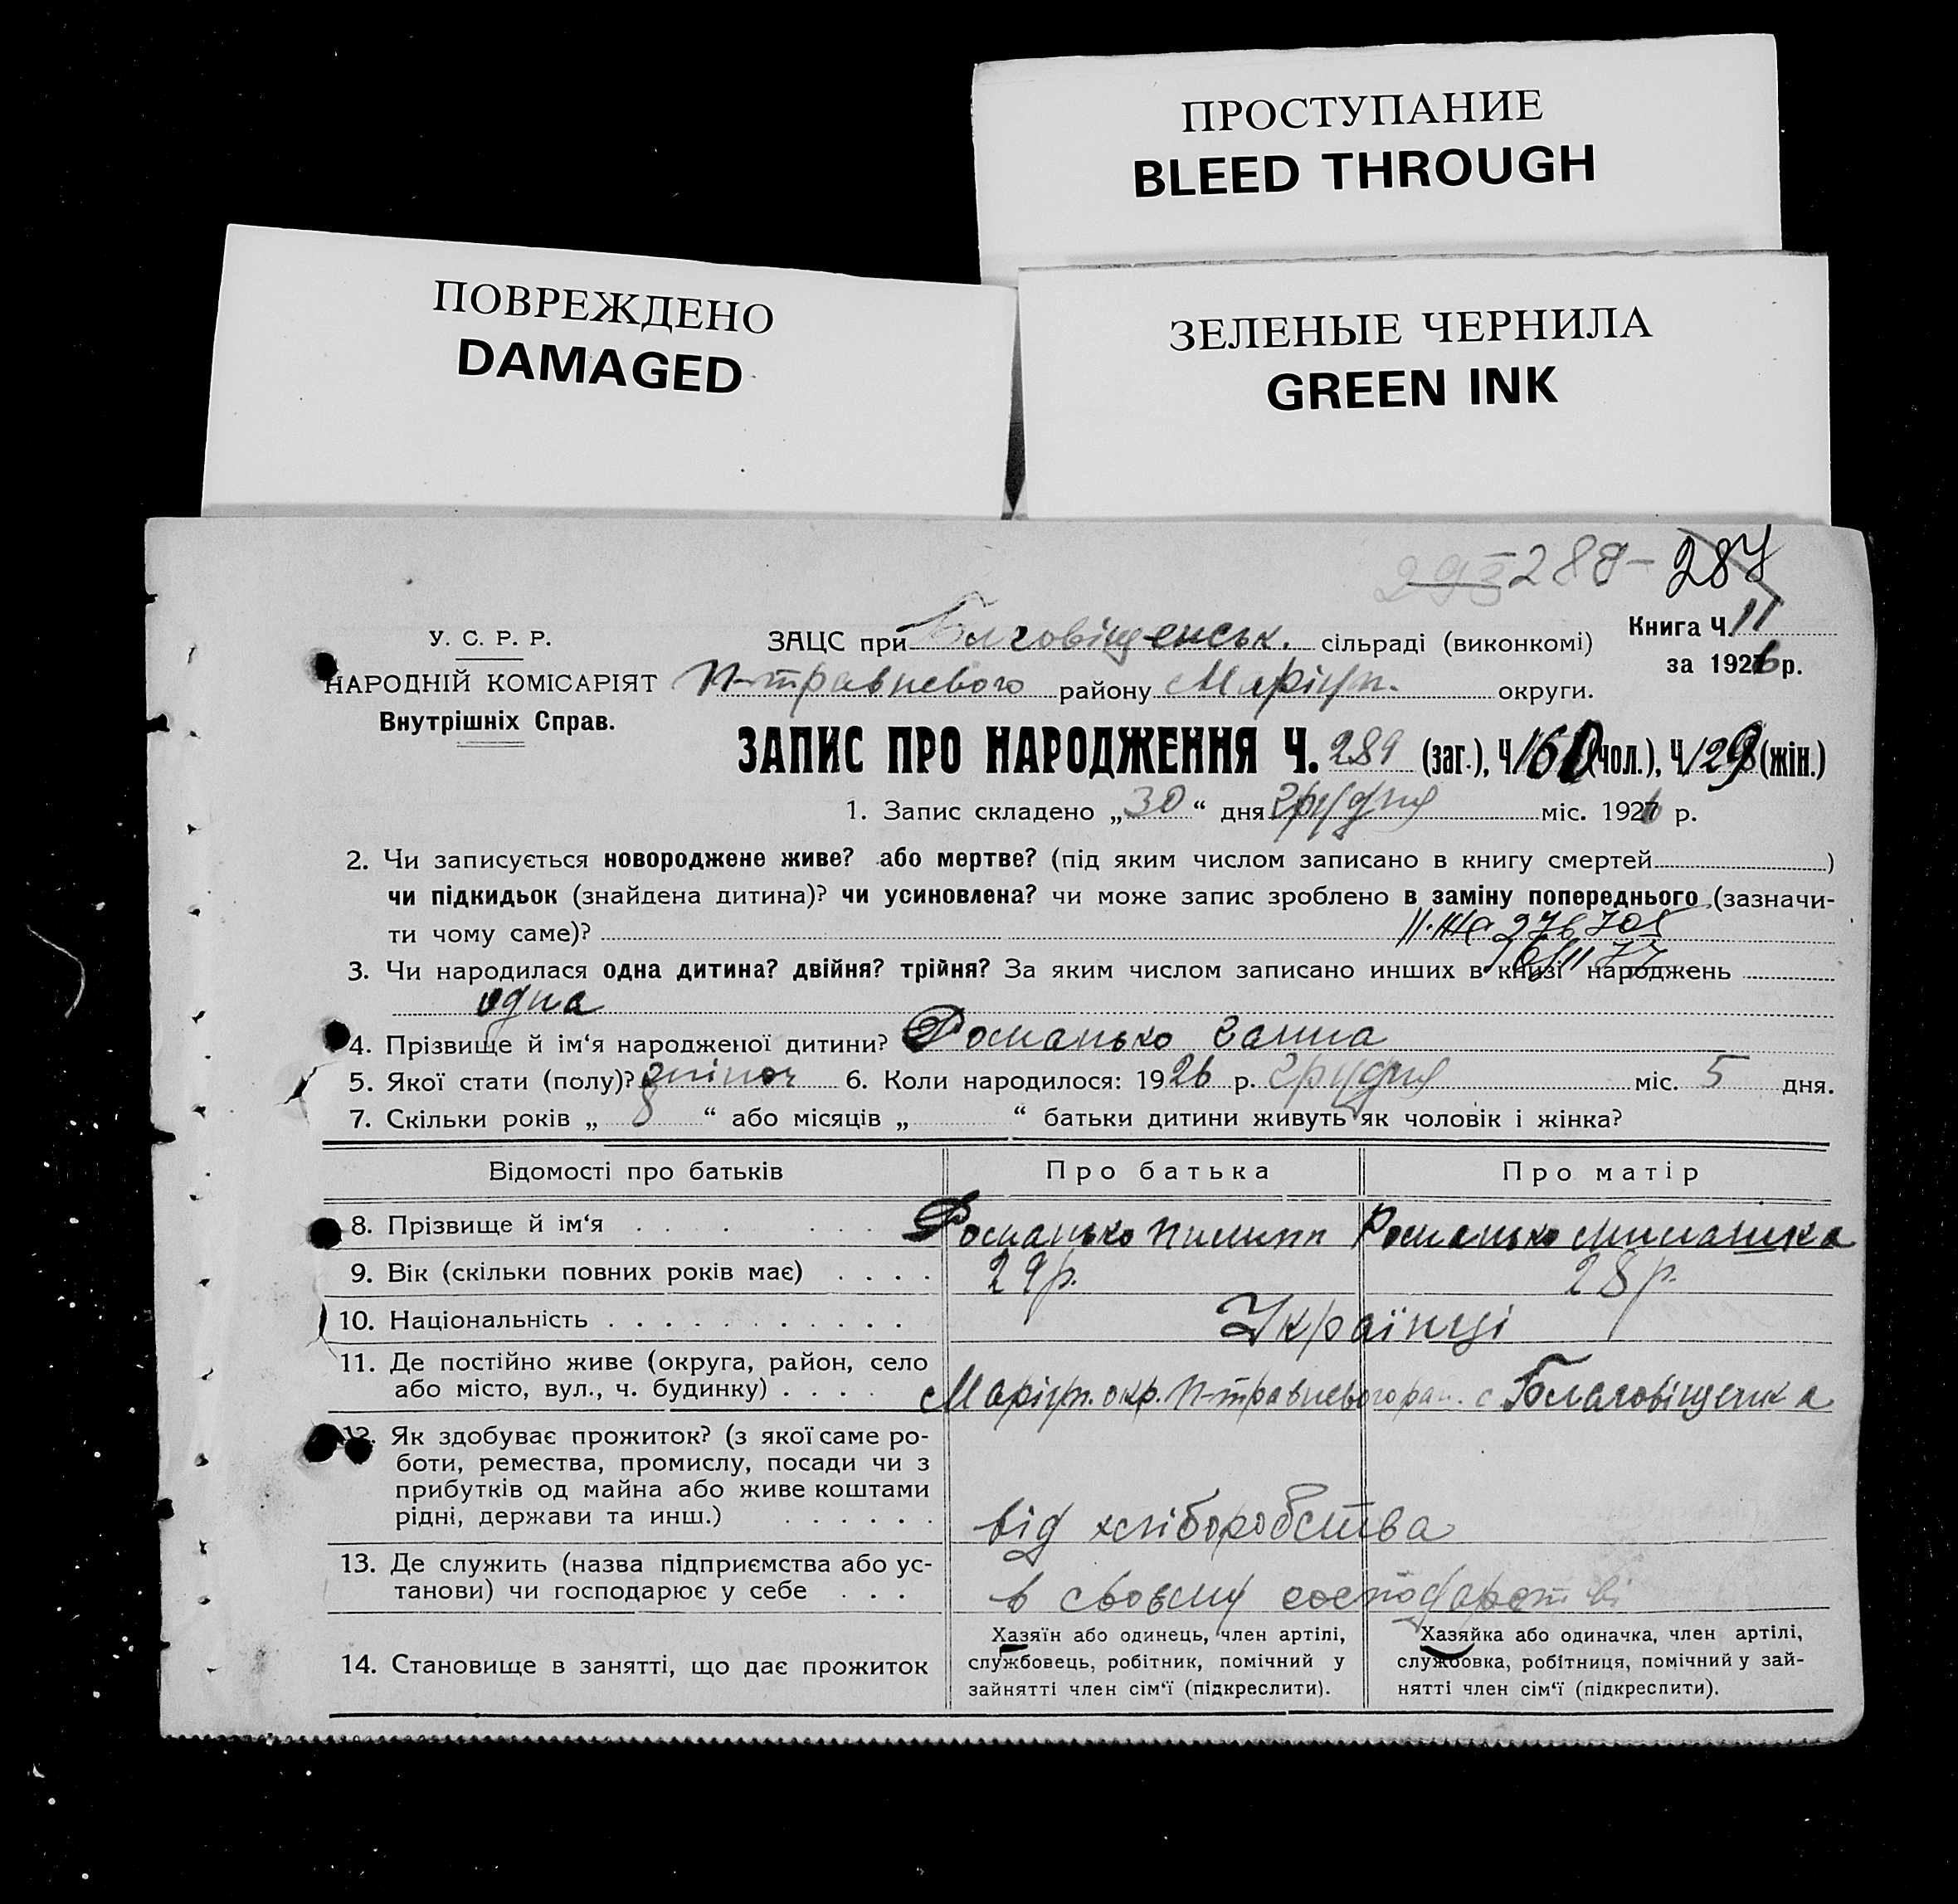 ПРОСТУПАНИЕ
BLEED THROUGH
ПОВРЕЖДЕНО
DAMAGED
ЗЕЛЕНЫЕ ЧЕРНИЛА
GREEN INK
293 288- 287
У. С. Р. Р.
НАРОДНІЙ КОМІСАРІЯТ
Внутрішніх Справ.
ЗАЦС при Блговіщенськ. сільраді (виконкомі)
Книга Ч. 11
за 1926 р.
П-травневого району Маріуп. округи.
ЗАПИС ПРО НАРОДЖЕННЯ Ч. 289 (заг.), Ч. 160 (чол.), Ч. 129 (жін.)
1. Запис складено „30“ дня грудня міс. 1926 р.
2. Чи записується новороджене живе? або мертве? (під яким числом записано в книгу смертей )
чи підкидьок (знайдена дитина)? чи усиновлена? чи може запис зроблено в заміну попереднього (зазначи-
ти чому саме)? 276705
3. Чи народилася одна дитина? двійня? трійня? За яким числом записано инших в книзі народжень
одна
4. Прізвище й ім‘я народженої дитини? Романько Ганна
5. Якої стати (полу)? жіноч 6. Коли народилося: 1926 р. грудня міс. 5 дня.
7. Скільки років „ 8 “ або місяців „ “ батьки дитини живуть як чоловік і жінка?
Відомості про батьків Про батька Про матір
8. Прізвище й ім‘я Романько Пилипп Романько
9. Вік (скільки повних років має) 29 р. 28 р.
10. Національність Українці
11. Де постійно живе (округа, район, село
або місто, вул., ч. будинку) Маріуп. окр. П-травневого рай. с Благовіщенка
12. Як здобуває прожиток? (з якої саме ро-
боти, ремества, промислу, посади чи з
прибутків од майна або живе коштами
рідні, держави та инш.) від хліборобства
13. Де служить (назва підприємства або ус-
танови) чи господарює у себе в своєму господарстві
14. Становище в занятті, що дає прожиток
Хазяїн або одинець, член артілі,
службовець, робітник, помічний у
зайнятті член сім‘ї (підкреслити).
Хазяйка або одиначка, член артілі,
службовка, робітниця, помічний у зай-
нятті член сім‘ї (підкреслити).